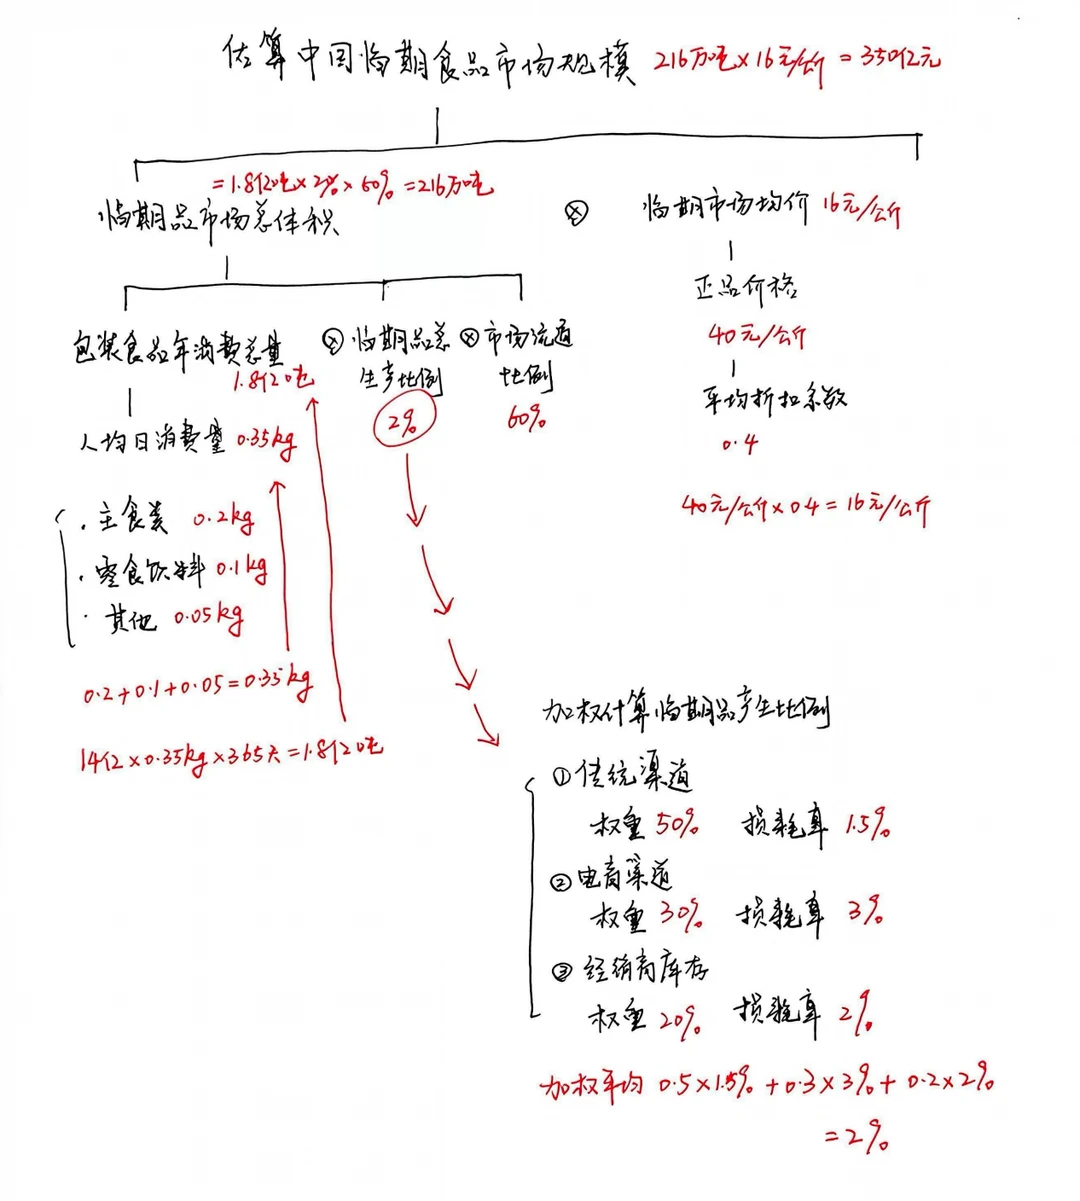 估算中国临期食品市场规模 216万吨×16元/公斤=350亿元
=1.8亿吨×2%×60%=216万吨
临期品市场总体积 ⊗ 临期市场均价 16元/公斤
正品价格
40元/公斤
包装食品年消费总量 ⊗ 临期品总生产比例 ⊗ 市场流通比例
1.8亿吨
2%
60%
平均折扣系数
0.4
人均日消费量 0.35kg
40元/公斤×0.4=16元/公斤
· 主食类 0.2kg
· 零食饮料 0.1kg
· 其他 0.05kg
0.2+0.1+0.05=0.35kg
14亿×0.35kg×365天=1.8亿吨
加权计算临期品产生比例
①传统渠道
权重 50% 损耗率 1.5%
②电商渠道
权重 30% 损耗率 3%
③经销商库存
权重 20% 损耗率 2%
加权平均 0.5×1.5%+0.3×3%+0.2×2%
=2%